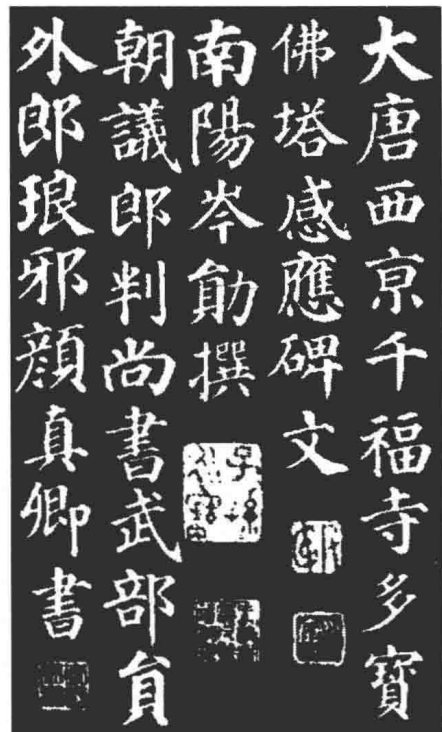 大唐西亰千福寺多寶
佛塔感應碑文
南陽岑勛撰
朝議郎判尚書武部員
外郎琅邪顏真卿書